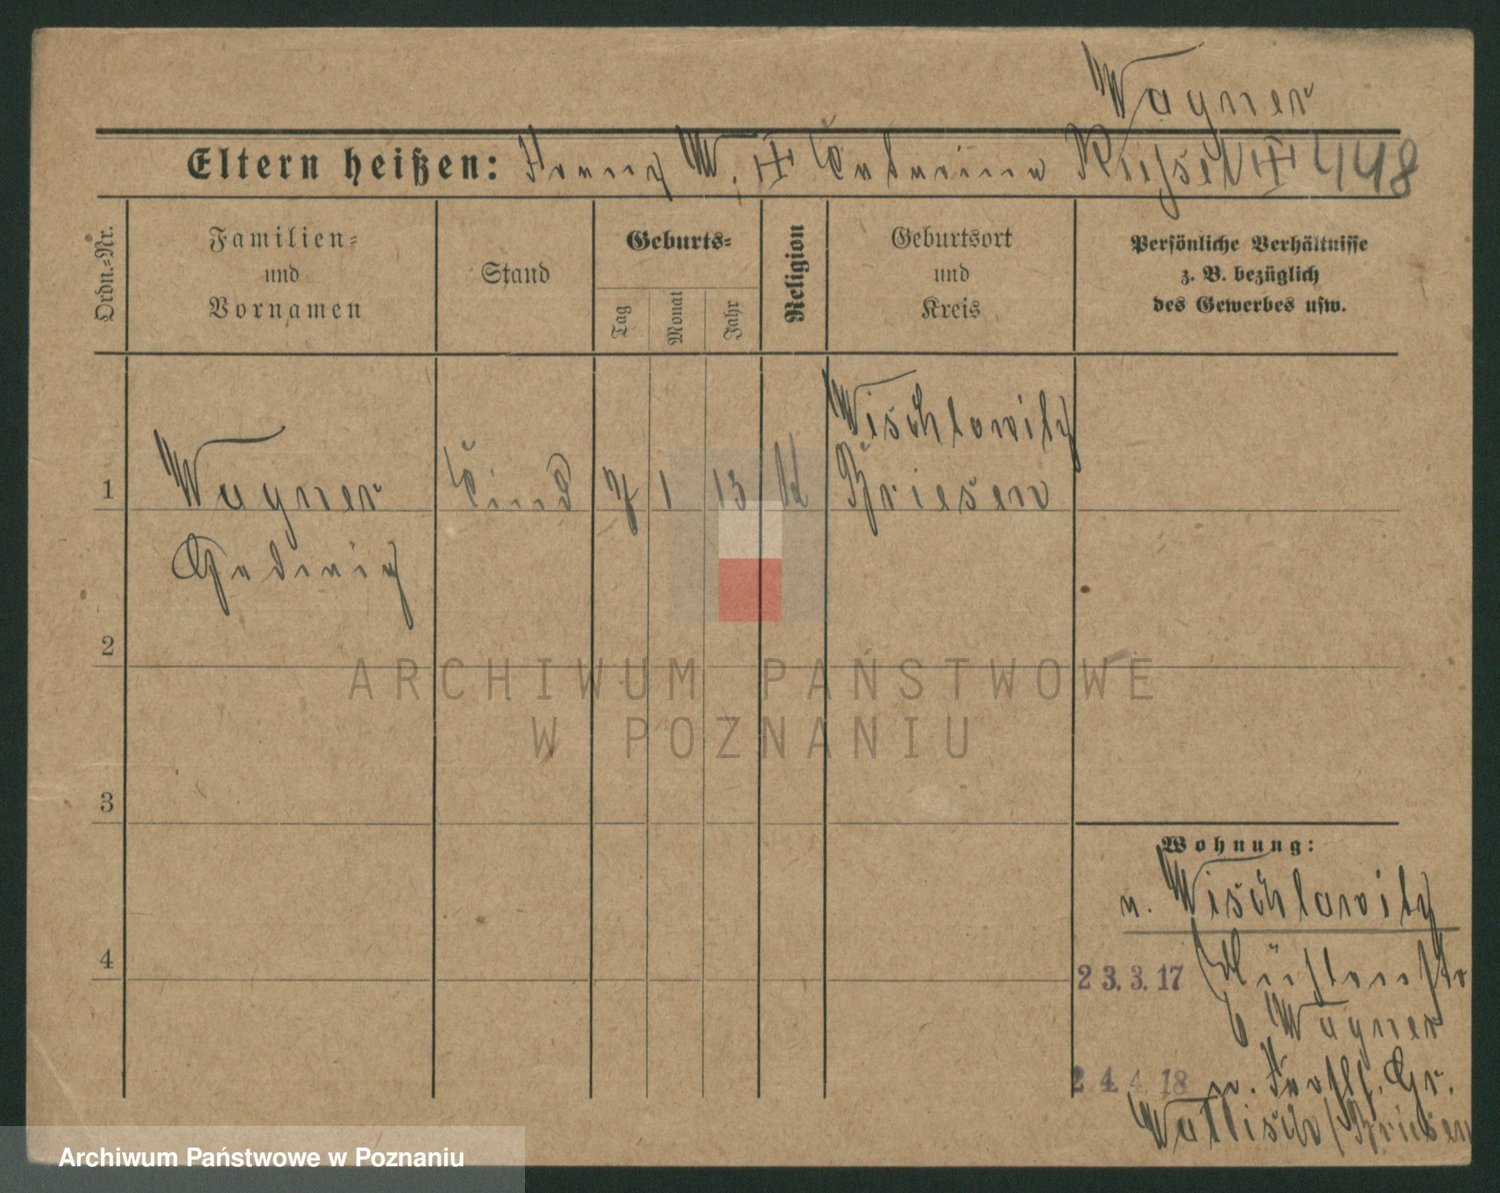 Wagner
Eltern heißen: Franz W. Katharina 448
Ordn.-Nr.
Familien-
und
Vornamen
Stand
Geburts-
Tag
Monat
Jahr
Religion
Geburtsort
und
Kreis
Persönliche Verhältnisse
z. B. bezüglich
des Gewerbes usw.
Wischlawitz
1 Wagner Kind 7 1 13 K Briesen
Hedwig
2
3
Wohnung:
n. Wischlawitz
4
23.3.17
b Wagner
24.4.18 n. Gr.
Wallisch/Briesen
ARCHIWUM PAŃSTWOWE
W POZNANIU
Archiwum Państwowe w Poznaniu